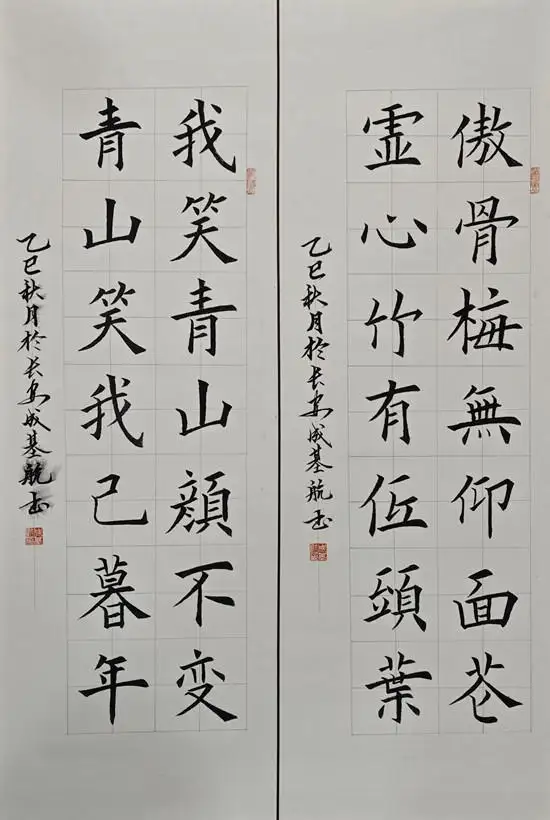 傲骨梅無仰面花
虚心竹有低頭葉
乙巳秋月於长安成基航书
我笑青山顔不变
青山笑我己暮年
乙巳秋月於长安成基航书